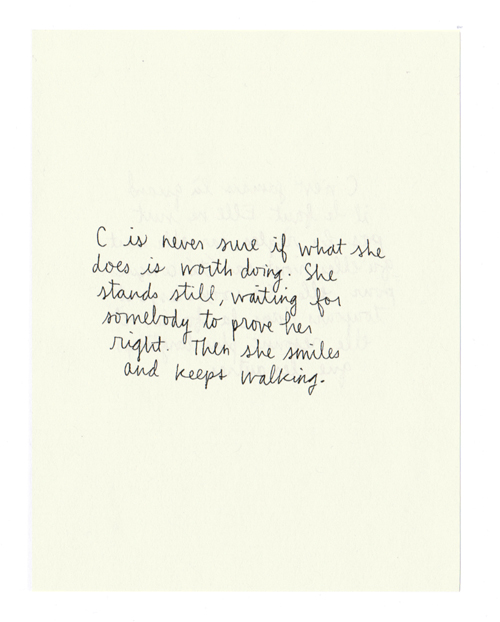 C is never sure if what she
does is worth doing. She
stands still, waiting for
somebody to prove her
right. Then she smiles
and keeps walking.